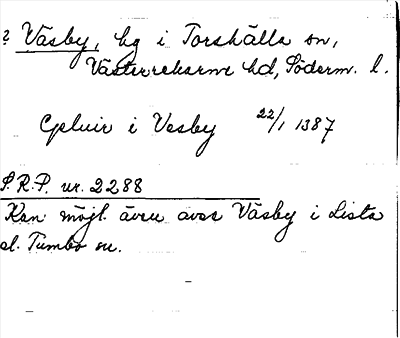 ? Väsby, by i Torshälla sn,
Västerrekarne hd, Söderm. l.
i Vesby 22/1 1387
S.R.P. nr. 2288
Kan möjl. även avse Väsby i Lista
el. Tumbo sn.